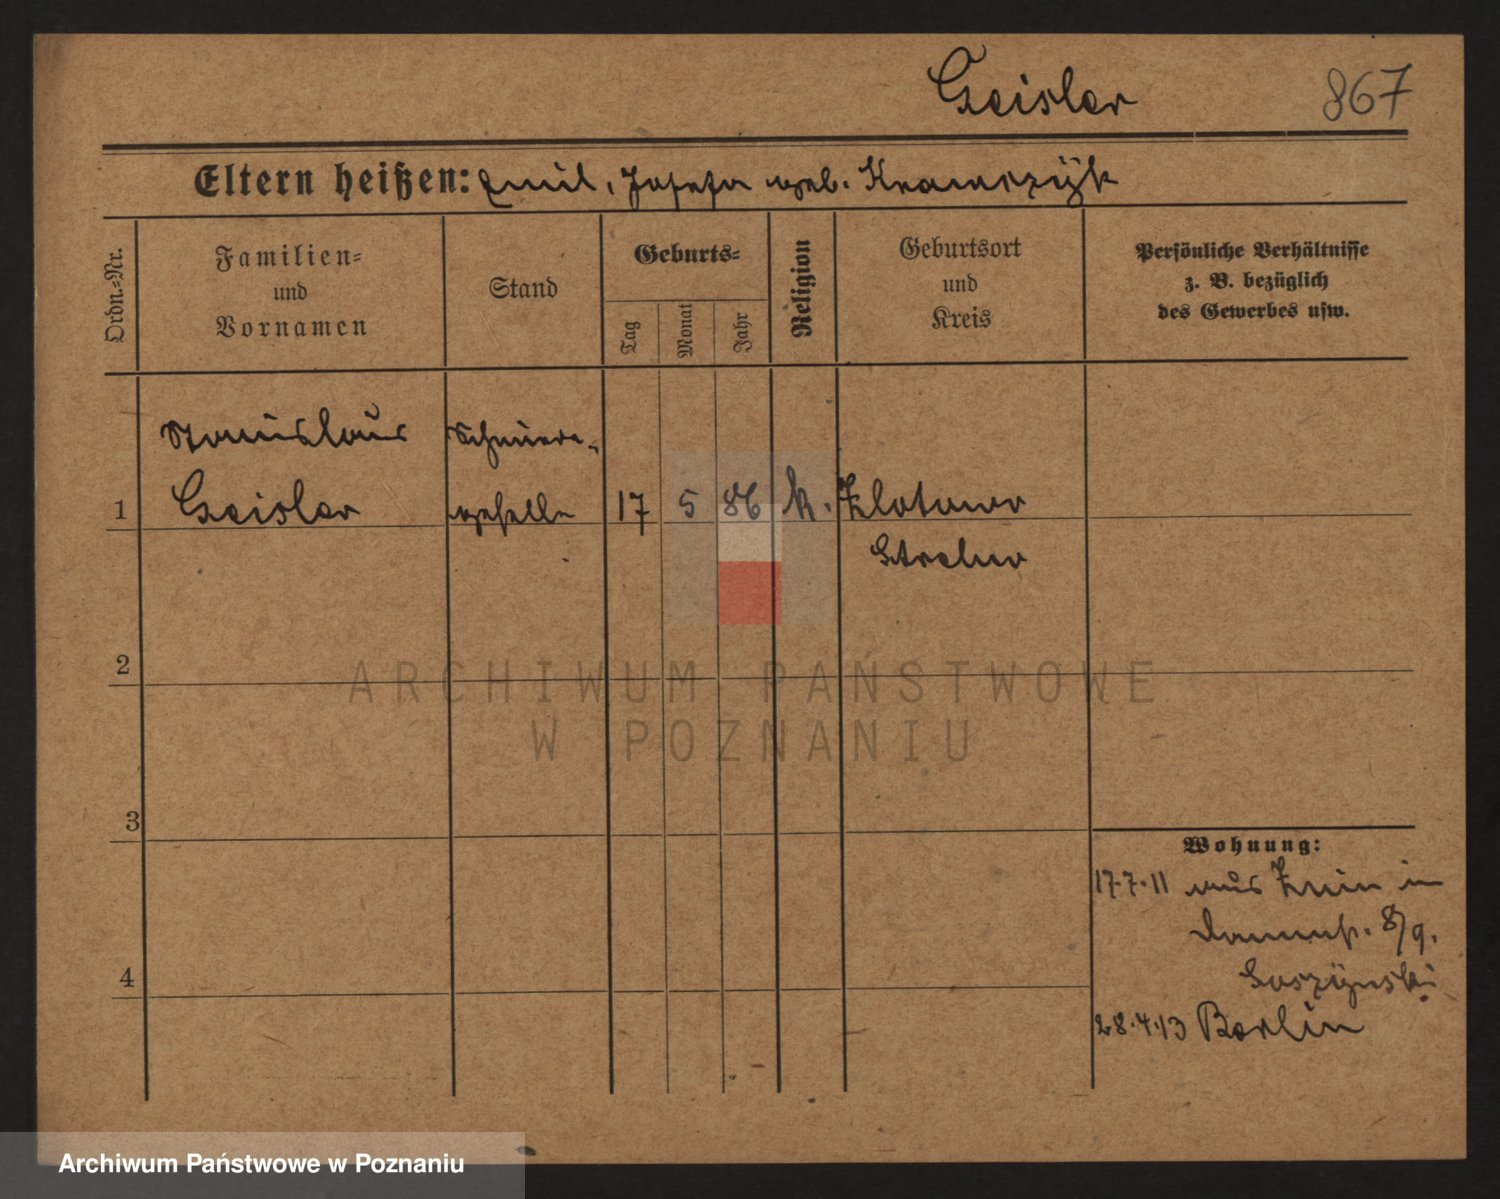 Geisler 867
Eltern heißen: Emil, Josefa geb. Krawczÿk
Ordn.-Nr.
Familien-
und
Vornamen
Stand
Geburts-
Tag
Monat
Jahr
Religion
Geburtsort
und
Kreis
Persönliche Verhältnisse
z. B. bezüglich
des Gewerbes usw.
Stanislaus
Geisler
1
geselle
17 5 86 k. Zlotowo
Strelno
2
3
4
Wohnung:
17.7.11 aus Znin in
8/9.
28.4.13 Berlin
ARCHIWUM PAŃSTWOWE
W POZNANIU
Archiwum Państwowe w Poznaniu